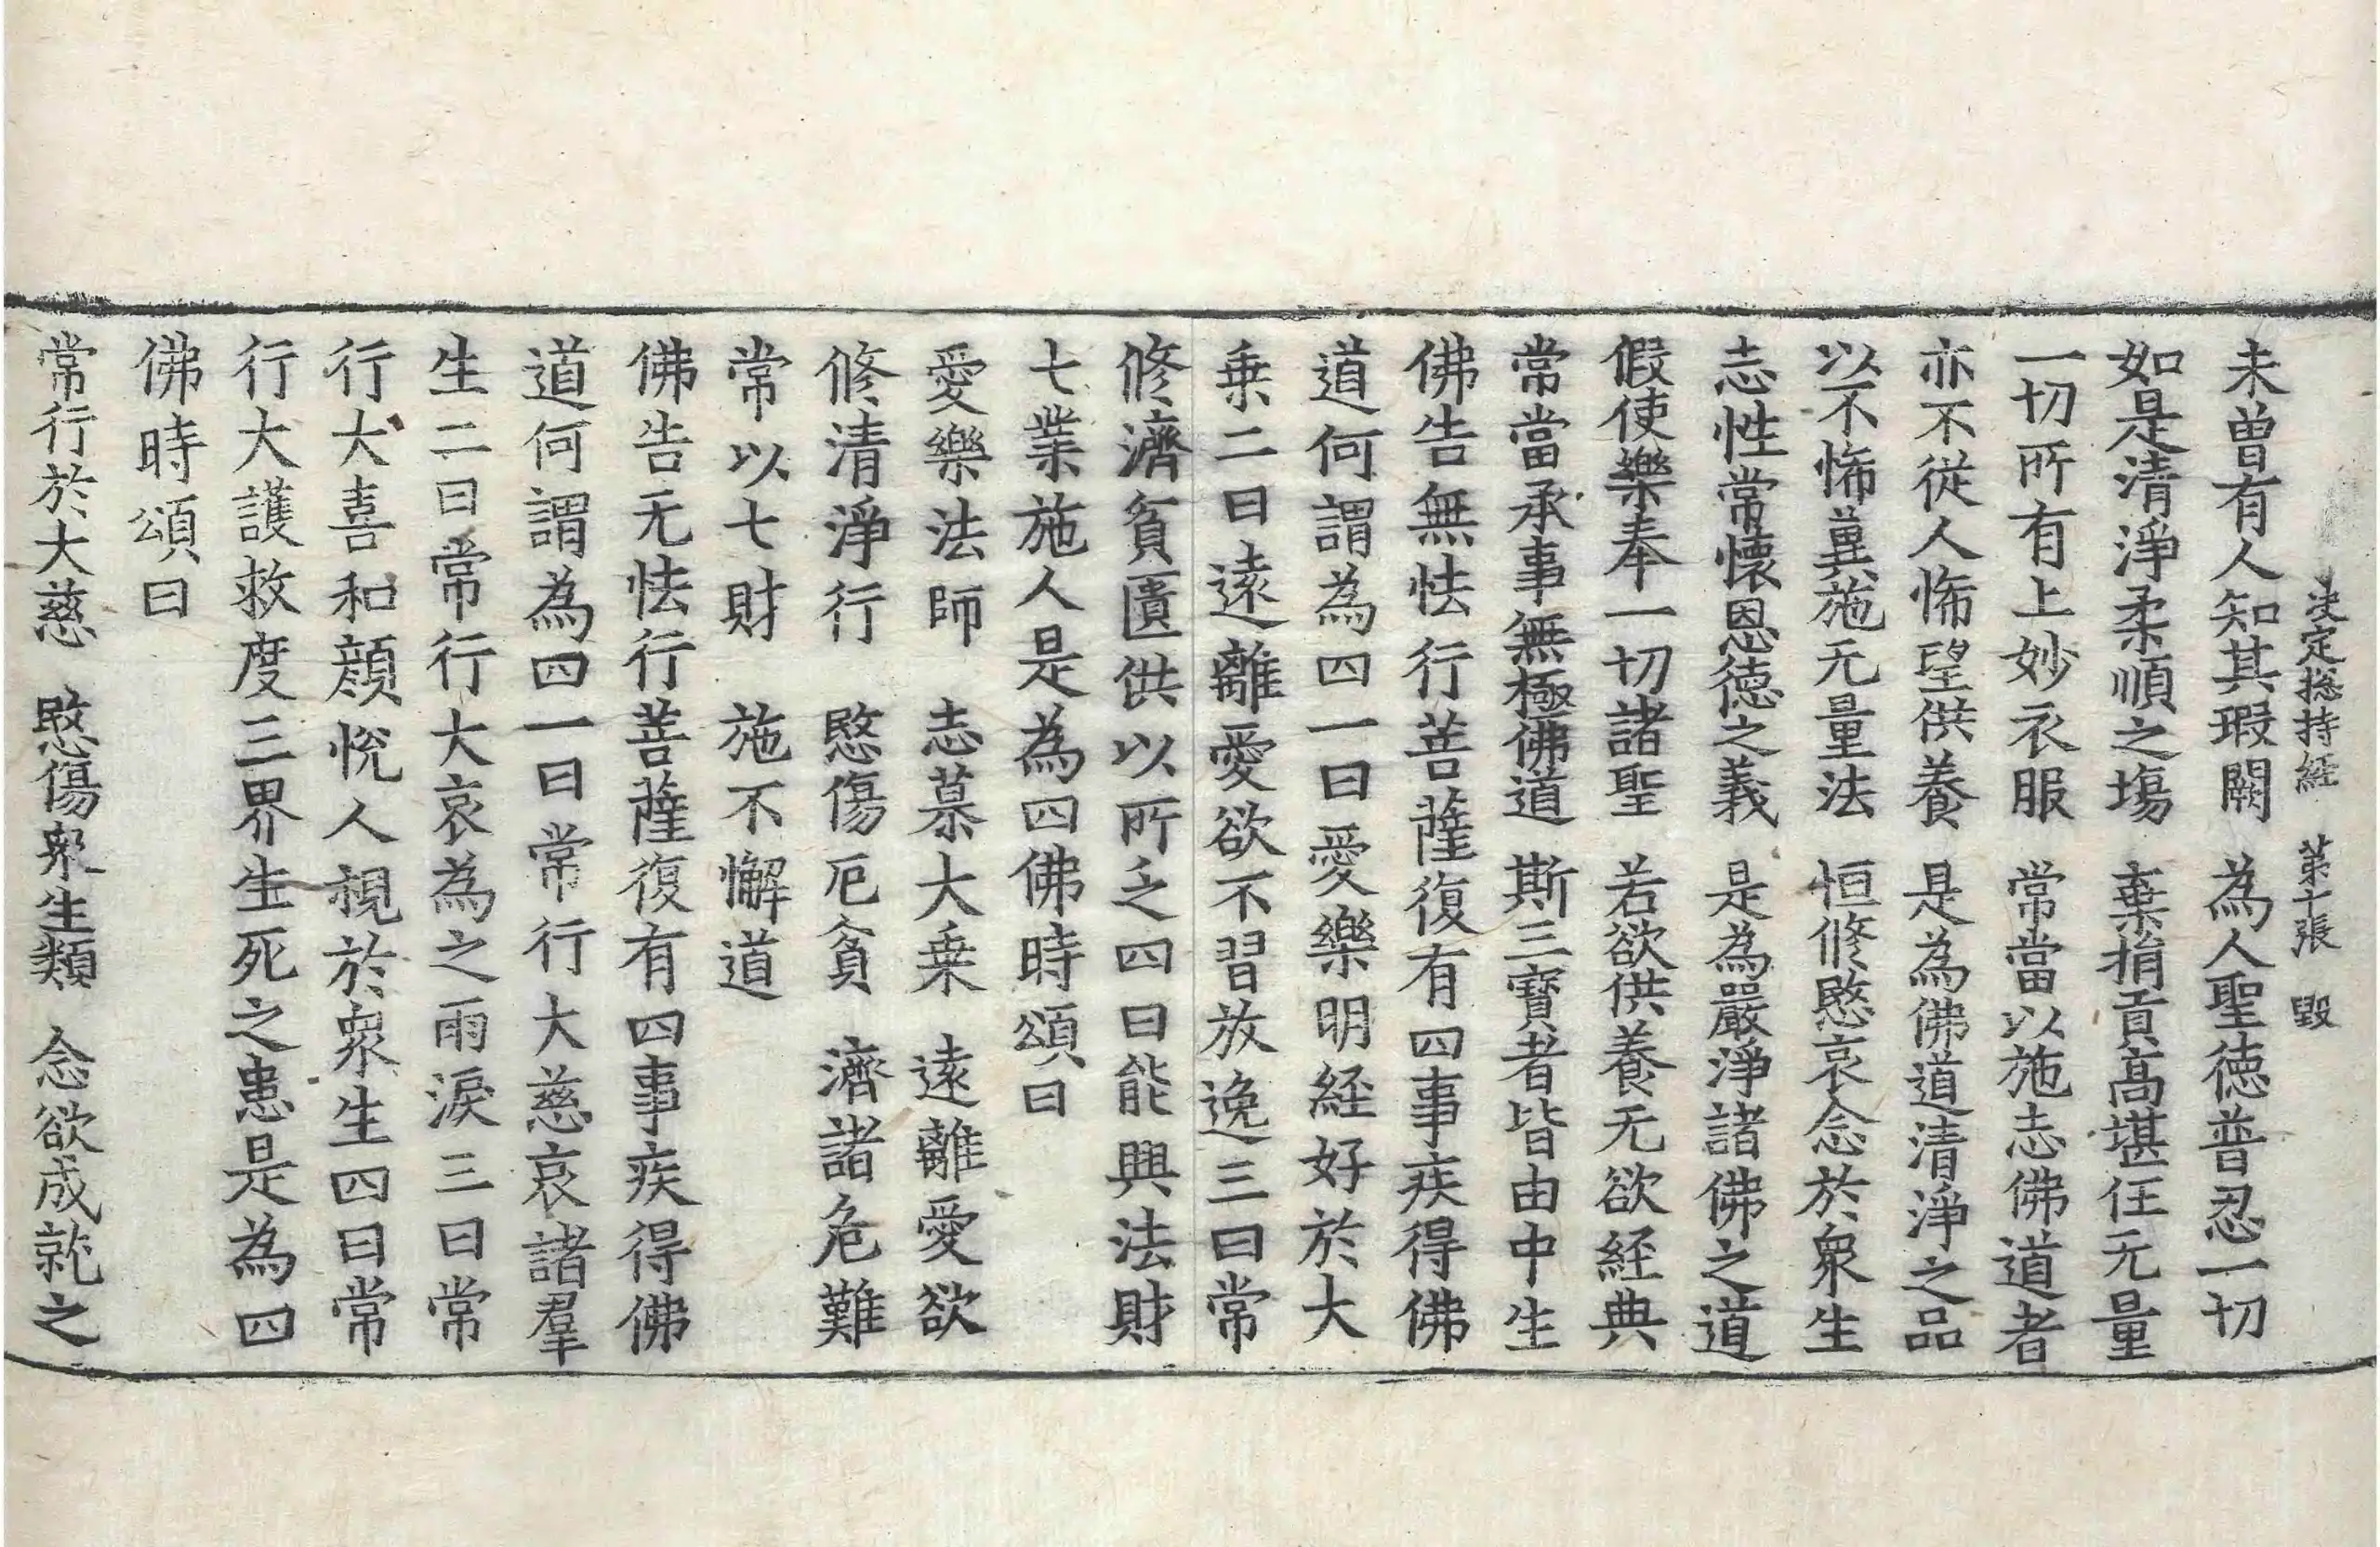 決定揔持經 第十張 毀
未曾有人知其瑕闕 為人聖德普忍一切
如是清淨柔順之場 棄捐貢高堪任无量
一切所有上妙衣服 常當以施志佛道者
亦不從人悕望供養 是為佛道清淨之品
以不悕兾施无量法 恒修愍哀念於衆生
志性常懷恩德之義 是為嚴淨諸佛之道
假使樂奉一切諸聖 若欲供養无欲経典
常當承事無極佛道 斯三寶者皆由中生
佛告無怯行菩薩復有四事疾得佛
道何謂為四一曰愛樂明経好於大
乗二曰遠離愛欲不習放逸三曰常
修濟貧匱供以所乏四曰能興法財
七業施人是為四佛時頌曰
愛樂法師 志慕大乗 遠離愛欲
修清淨行 愍傷厄貧 濟諸危難
常以七財 施不懈道
佛告无怯行菩薩復有四事疾得佛
道何謂為四一曰常行大慈哀諸羣
生二曰常行大哀為之雨淚三曰常
行大喜和顔悅人視於衆生四曰常
行大護救度三界生死之患是為四
佛時頌曰
常行於大慈 愍傷衆生類 念欲成就之